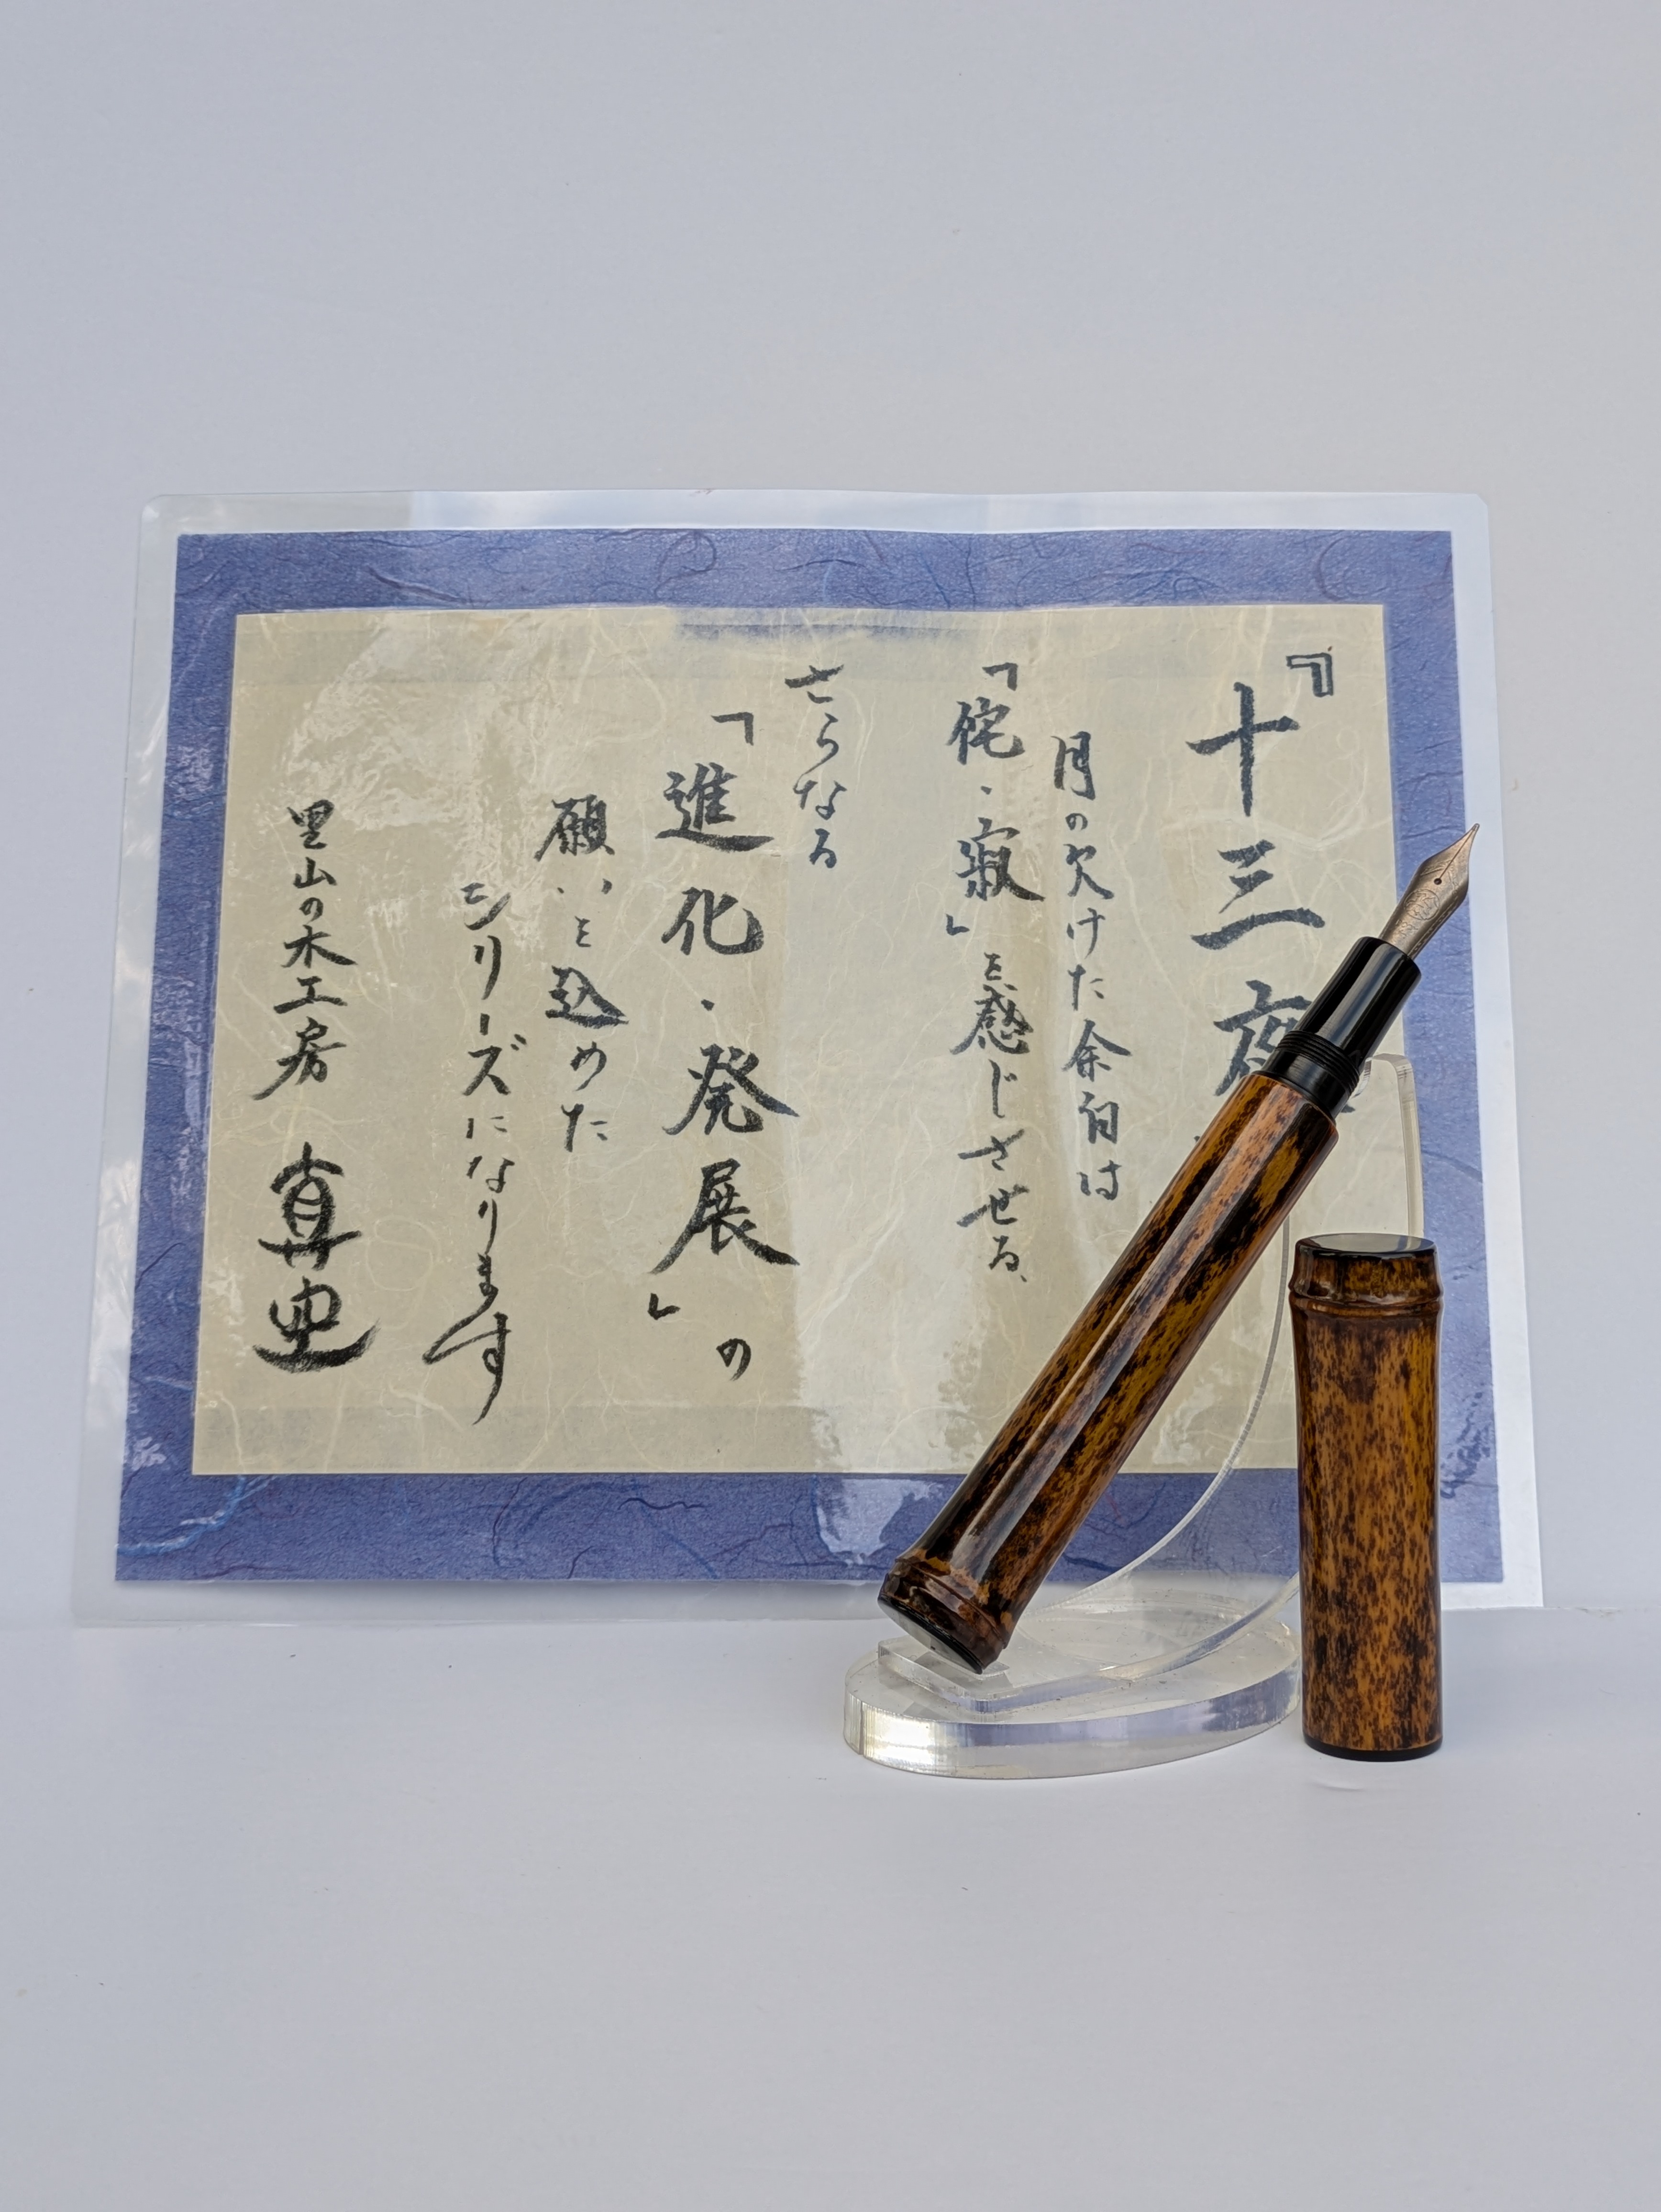 『十三夜
月の欠けた余白は
「侘・寂」を感じさせる、
さらなる
「進化・発展」の
願いを込めた
シリーズになります
里山の木工房 真史